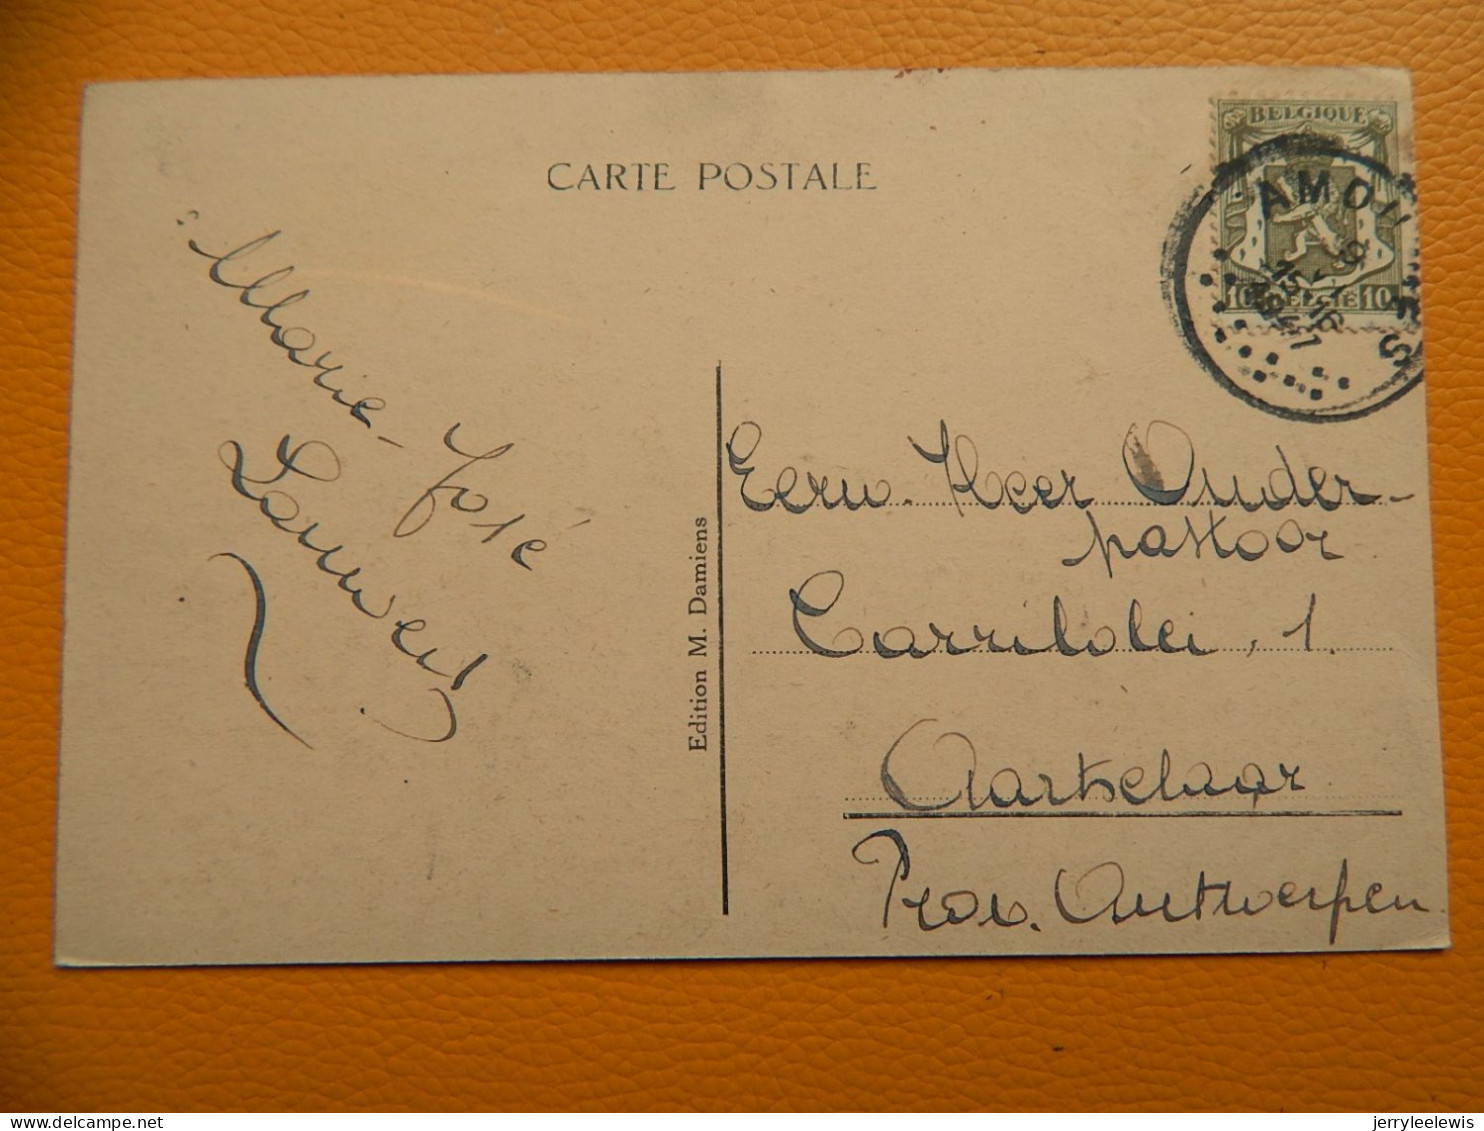 CARTE POSTALE
BELGIQUE
10 BELGIË 10
AMOU ES
15-16
Marie-José
Lauwers
Edition M. Damiens
Eerw. Heer Onder-
pastoor
Carrilolei, 1.
Aartselaar
Prov. Antwerpen
jerryleelewis